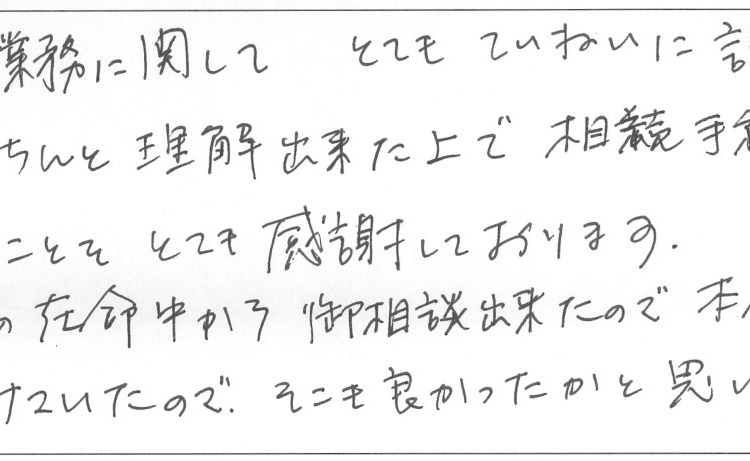 業務に関して とても ていねいに
ちんと 理解出来た上で 相続手
ことを とても 感謝しております.
の 在命中から 御相談出来たので 本
けていたので. そこも良かったかと思い